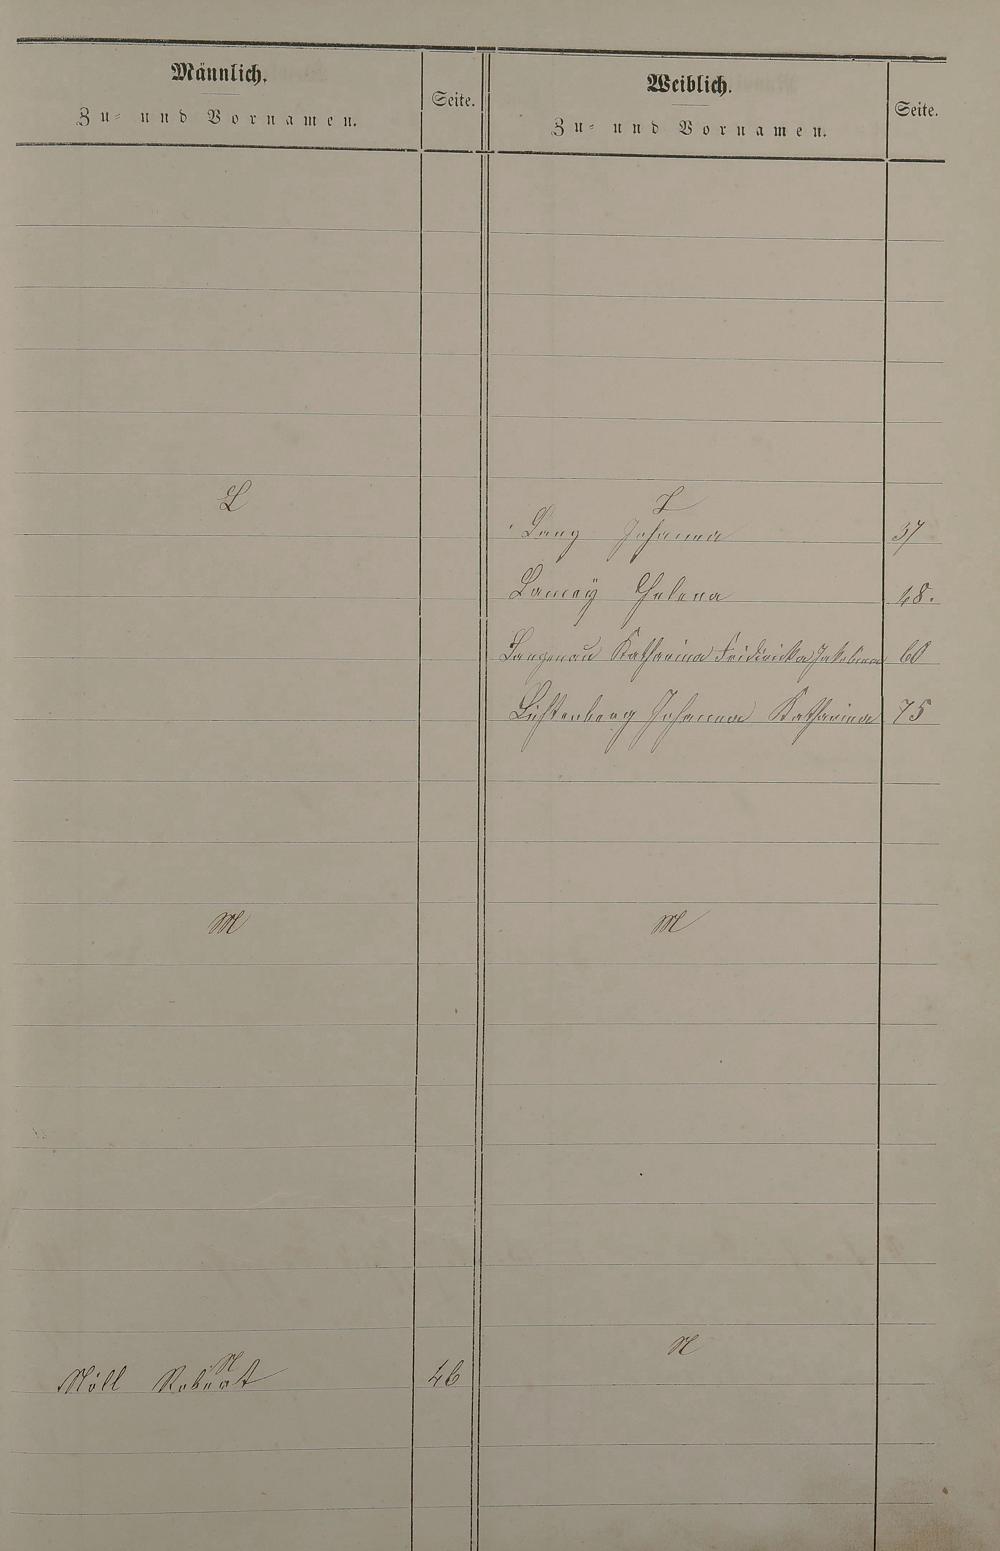 Männlich.
Zu- und Vornamen.
Seite.
Weiblich.
Zu- und Vornamen.
Seite.
L
L
Lang Johanna 37
Lamey Helena 48.
Langenau Katharina Fridericka Jakobina 60
Lichtenberg Johanna Katharina 75
M
M
N
N
Nöll Robert 46